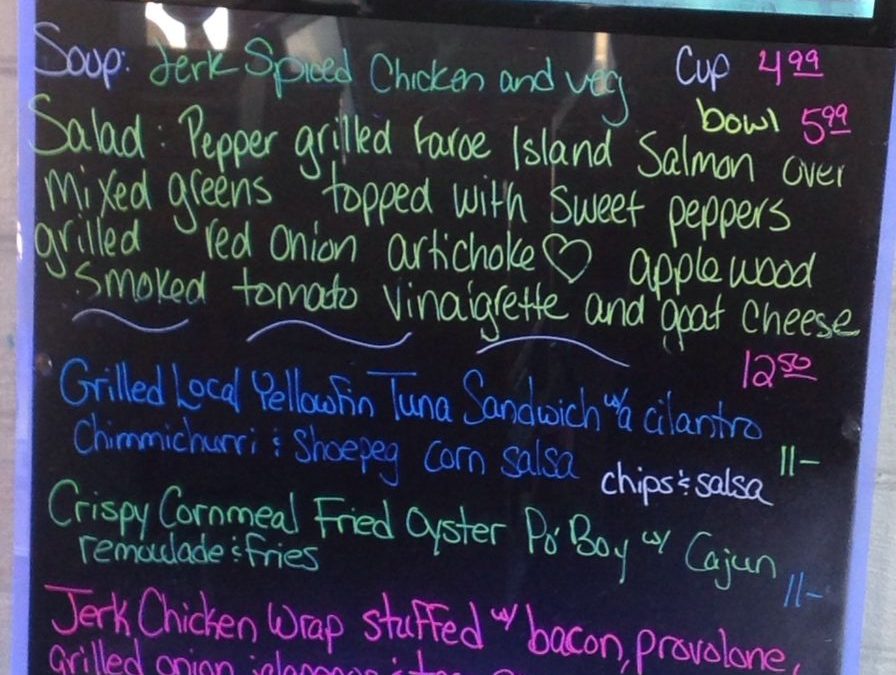 Soup: Jerk Spiced Chicken and veg Cup 4.99
bowl 5.99
Salad: Pepper grilled Faroe Island Salmon over
mixed greens topped with sweet peppers
grilled red onion artichoke♡ applewood
smoked tomato vinaigrette and goat cheese
12.50
Grilled Local Yellowfin Tuna Sandwich w/a cilantro
Chimmichurri & Shoepeg corn salsa 11-
chips & salsa
Crispy Cornmeal Fried Oyster Po' Boy w/ Cajun
remoulade & fries 11-
Jerk Chicken Wrap stuffed w/ bacon, provolone,
grilled onion